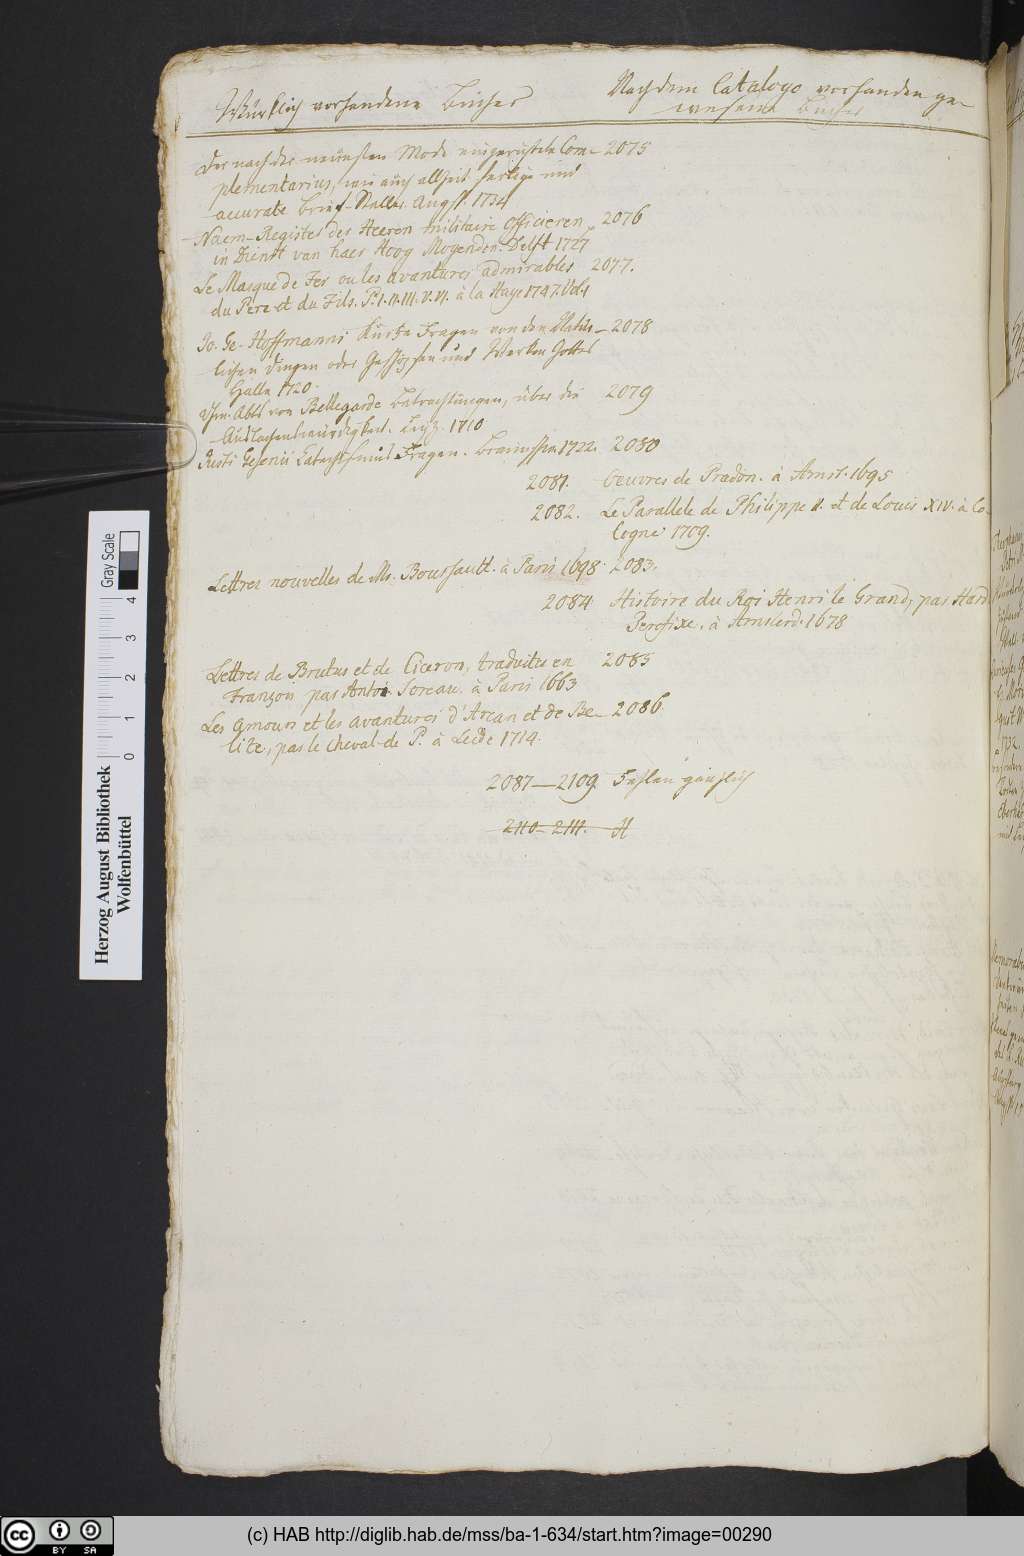 Würklich vorhandene Bücher
Nach dem Catalogo vorhanden ge-
wesene Bücher
Der nach der neuesten Mode eingerichtete Com- 2075
plementarius, wie auch allzeit fertige und
accurate Brief-Steller. Augsp. 1734
Naem-Register der Heeren militaire Officieren 2076
in Dienst van haer Hoog Mogenden. Delft 1727
Le Masque de Fer ou les avantures admirables 2077.
du Pere et du Fils. P. I. II. III. V. VI. à la Haye 1747. Vol. 1
Jo. Ge. Hoffmanns Kurtze Fragen von den Natür- 2078
lichen Dingen oder Geschöpfen und Werken Gottes
Halle 1720.
Abts von Bellegarde Betrachtungen, über die 2079
Auslachenswürdigkeit. Leipz. 1710
Justi Gesenii Catechismus Fragen. Braunschw. 1722. 2080
2081. Oeuvres de Pradon. à Amst. 1695
2082. Le Parallele de Philippe II. et de Louis XIV. à Co-
logne 1709.
Lettres nouvelles de Mr. Boursault. à Paris 1698. 2083.
2084 Histoire du Roi Henri le Grand, par Hard.
Perefixe. à Amsterd. 1678
Lettres de Brutus et de Ciceron, traduites en 2085
François par Antoi. Soreau. à Paris 1663
Les amours et les avantures d'Arcan et de Be- 2086.
lize, par le Cheval. de P. à Leide 1714.
2087—2109 Fehlen gänzlich
2110-2111.
Herzog August Bibliothek
Wolfenbüttel
Gray Scale
0 1 2 3 4
(c) HAB http://diglib.hab.de/mss/ba-1-634/start.htm?image=00290
cc BY SA